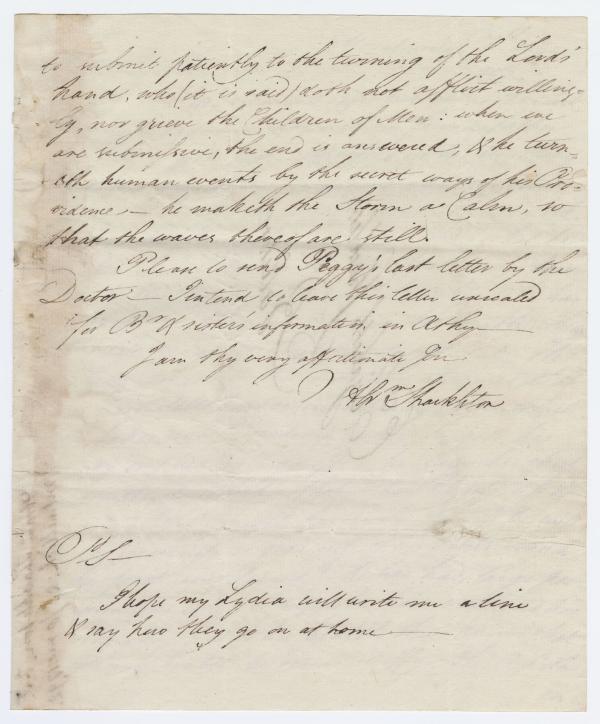 to submit patiently to the turning of the Lord's
hand, who (it is said) doth not afflict willing-
ly, nor grieve the Children of Men: when we
are submissive, the end is answered, & he turn-
eth human events by the secret ways of his Pro-
vidence,— he maketh the Storm a Calm, so
that the waves thereof are still.
Please to send Peggy's last letter by the
Doctor— I intend to leave this letter unsealed
for Br & sister's information in Athy—
I am thy very affectionate
Abrm Shackleton
PS—
I hope my Lydia will write me a line
& say how they go on at home—